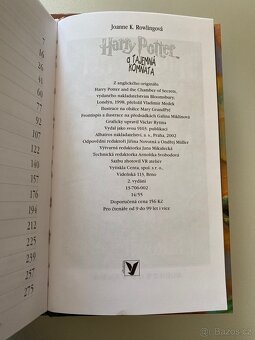 7
16
26
41
60
77
92
107
122
137
150
157
176
194
212
225
239
257
275
Joanne K. Rowlingová
Harry Potter
a TAJEMNÁ
KOMNATA
Z anglického originálu
Harry Potter and the Chamber of Secrets,
vydaného nakladatelstvím Bloomsbury,
Londýn, 1998, přeložil Vladimír Medek
Ilustrace na obálce Mary Grandpré
Frontispis a ilustrace na předsádkách Galina Miklínová
Graficky upravil Václav Rytina
Vydal jako svou publikaci
Albatros nakladatelství, a. s., Praha, 2002
Odpovědní redaktoři Jiřina Novotná a Ondřej Müller
Výtvarná redaktorka Jana Mikulecká
Technická redaktorka Arnoštka Svobodová
Sazbu zhotovil VR atelier
Vytiskla Centa, spol. s r. o.,
Vídeňská 113, Brno
2. vydání
13-706-002
14/55
Doporučená cena 196 Kč
Pro čtenáře od 9 do 99 let i více
bazos.cz